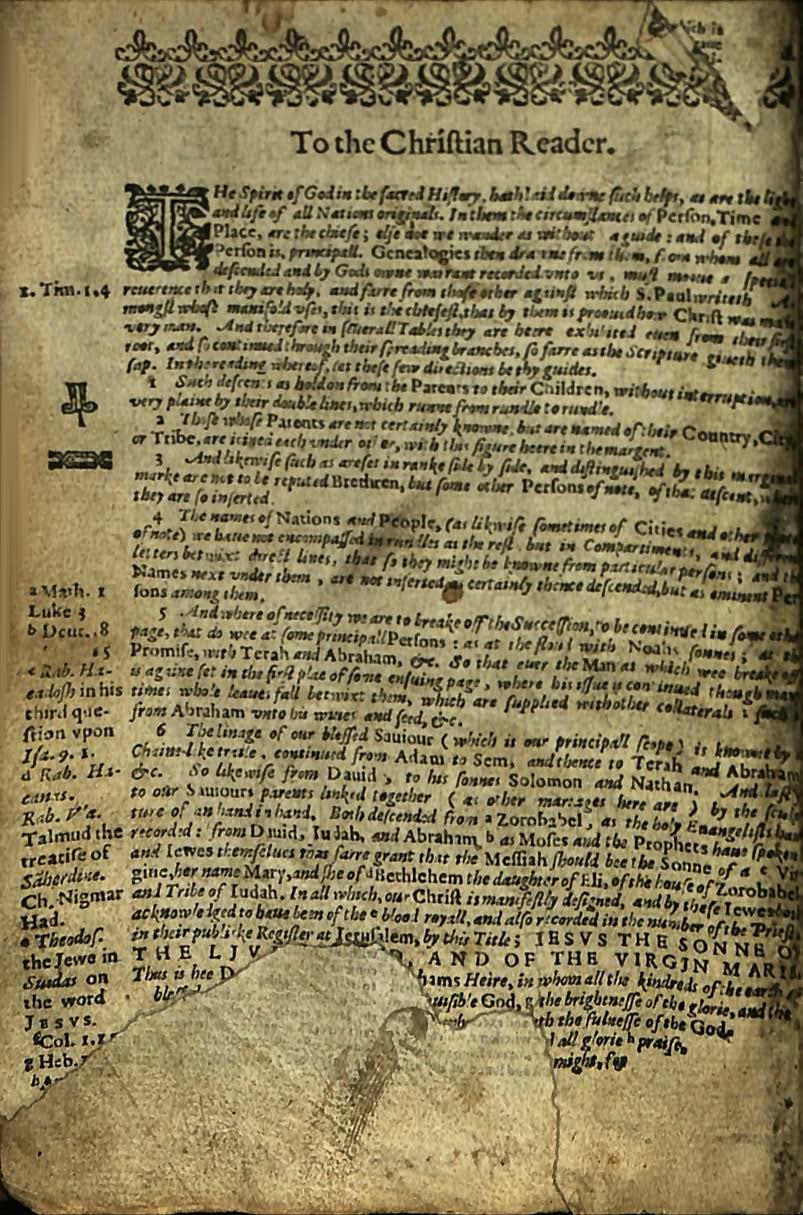 To the Chriſtian Reader.
THe Spirit of God in the ſacred Hiſtory, hath laid downe ſuch helps, as are the light
and life of all Nations originals. In them the circumſtances of Perſon, Time and
Place, are the chiefe; elſe doe we wander as without a guide: and of theſe the
Perſon is, principall. Genealogies then drawne from them, from whom all are
deſcended and by Gods owne warrant recorded vnto vs, muſt moue a ſpeciall
1. Tim. 1.4 reuerence that they are holy, and farre from thoſe other againſt which S. Paul writeth
mongſt whoſe manifold vſes, this is the chiefeſt, that by them is proued how Chriſt was made
very man. And therefore in ſeuerall Tables they are heere exhibited euen from their firſt
root, and ſo continued through their ſpreading branches, ſo farre as the Scripture giueth them
ſap. In the reading whereof, let theſe few directions be thy guides.
1 Such deſcents as hold on from the Parents to their Children, without interruption, are
very plaine by their double lines, which runne from rundle to rundle.
2 Thoſe whoſe Parents are not certainly knowne, but are named of their Country, City
or Tribe, are ioined each vnder other, with this figure heere in the margent.
3 And likewiſe ſuch as are ſet in ranke ſide by ſide, and diſtinguiſhed by this marginal
marke are not to be reputed Brethren, but ſome other Perſons of note, of that deſcent, when
they are ſo inſerted.
4 The names of Nations and People, (as likewiſe ſometimes of Cities and other places
of note) we haue not encompaſſed in rundles as the reſt, but in Compartiments, and different
letters betwixt direct lines, that ſo they might be knowne from particular perſons; and the
Names next vnder them, are not inſerted as certainly thence deſcended, but as eminent Per
ſons among them.
a Math. 1
Luke 3
b Deut. 18
15
c Rab. Ha-
cadoſh in his
third que-
ſtion vpon
Iſa. 9. 1.
d Rab. Ha-
canas.
Rab.
Talmud the
treatiſe of
Saherdine.
Ch. Nigmar
Had.
e Theodoſ.
the Jewe in
Suidas on
the word
Jesvs.
f Col. 1.15
g Heb.
5 And where of neceſſity we are to breake off the Succeſſion, to be continued in ſome other
page, that do wee at ſome principall Perſons: as at the floud with Noahs ſonnes; at the
Promiſe, with Terah and Abraham, &c. So that euer the Man at which wee breake off
is againe ſet in the firſt place of ſome enſuing page, where his iſſue is continued though many
times whole leaues fall betwixt them, which are ſupplied with other collaterals: ſuch
from Abraham vnto his wiues and ſeed, &c.
6 The linage of our bleſſed Sauiour (which is our principall ſcope) is knowne by a
Chaine-like traile, continued from Adam to Sem, and thence to Terah and Abraham
&c. So likewiſe from Dauid, to his ſonnes Solomon and Nathan. And laſtly
to our Sauiours parents linked together (as other mariages here are) by the ſculp
ture of an hand in hand. Both deſcended from a Zorobabel, as the holy Euangeliſts haue
recorded: from Dauid, Iudah, and Abraham, b as Moſes and the Prophets haue ſpoken
and Iewes themſelues thus farre grant that the Meſſiah ſhould bee the Sonne of a c Vir
gine, her name Mary, and ſhe of d Bethlehem the daughter of Eli, of the houſe of Zorobabel
and Tribe of Iudah. In all which, our Chriſt is manifeſtly deſigned, and by theſe Iewes both
acknowledged to haue been of the e blood royall, and alſo recorded in the number of the Prieſts
in their publike Regiſter at Jeruſalem, by this Title; IESVS THE SONNE OF
THE LIV AND OF THE VIRGIN MARIE
Thus is hee hams Heire, in whom all the kindreds of the earth
bleſſed uiſible God, g the brightneſſe of the glorie, and the
th the fulneſſe of the God
all glorie h praiſe,
might, for